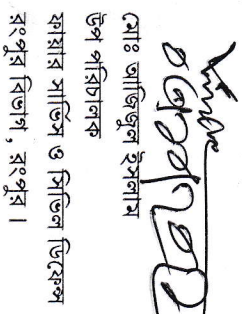 মোঃ আজিজুল ইসলাম
উপ পরিচালক
ফায়ার সার্ভিস ও সিভিল ডিফেন্স
রংপুর বিভাগ, রংপুর।